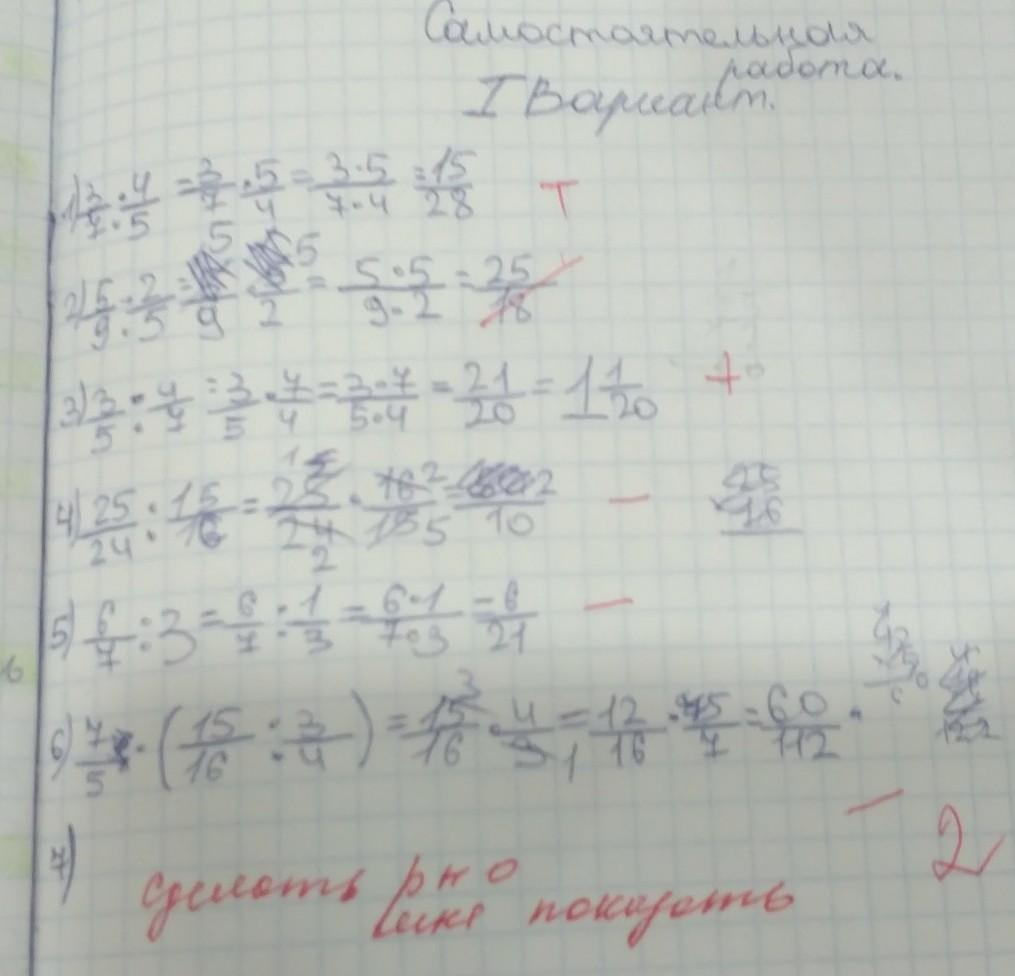 Самостоятельная
работа.
I Вариант.
1) 3/7 : 4/5 = 3/7 · 5/4 = 3·5/7·4 = 15/28 +
2) 5/9 : 2/5 = 5/9 · 5/2 = 5·5/9·2 = 25/18
3) 3/5 : 4/7 = 3/5 · 7/4 = 3·7/5·4 = 21/20 = 1 1/20 +
4) 25/24 : 15/16 = 25/24 · 16/15 = 2/10 —
5) 6/7 : 3 = 6/7 : 1/3 = 6·1/7·3 = 6/21 —
6) 7/5 · (15/16 : 3/4) = 15/16 · 4/3 = 12/16 · 5/7 = 60/112 —
7)
2
сделать р н о
мне показать